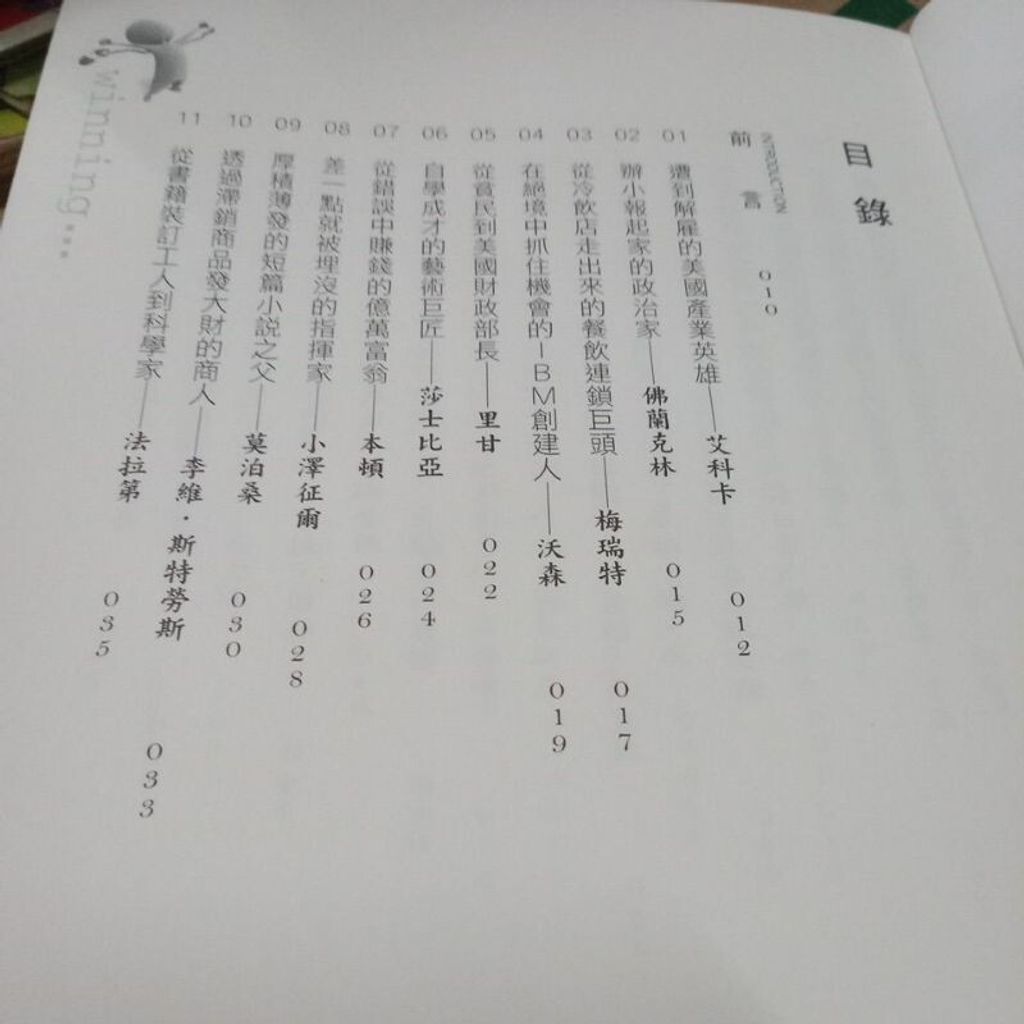 目錄
INTRODUCTION
前言 010
01 遭到解雇的美國產業英雄——艾科卡 012
02 辦小報起家的政治家——佛蘭克林 015
03 從冷飲店走出來的餐飲連鎖巨頭——梅瑞特 017
04 在絕境中抓住機會的IBM創建人——沃森 019
05 從貧民到美國財政部長——里甘 022
06 自學成才的藝術巨匠——莎士比亞 024
07 從錯誤中賺錢的億萬富翁——本頓 026
08 差一點就被埋沒的指揮家——小澤征爾 028
09 厚積薄發的短篇小說之父——莫泊桑 030
10 透過滯銷商品發大財的商人——李維・斯特勞斯 033
11 從書籍裝訂工人到科學家——法拉第 035
winning...